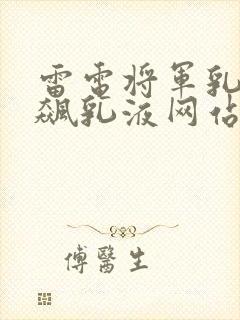 雷电将军乳
飙乳液网站
傅醫生